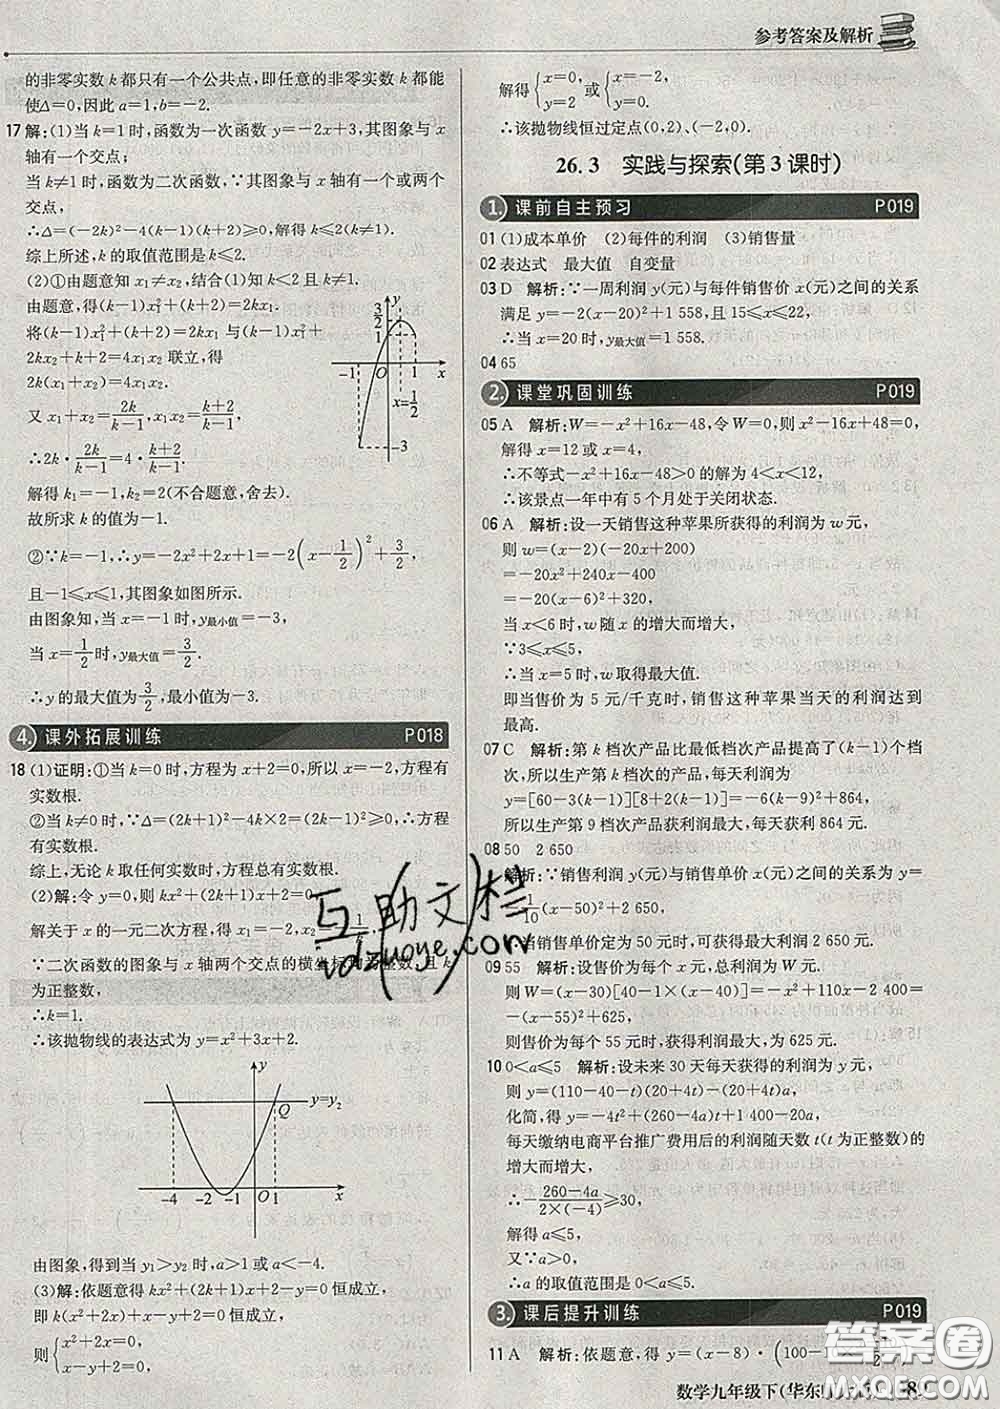 参考答案及解析
的非零实数 k 都只有一个公共点，即任意的非零实数 k 都能
使Δ=0，因此 a=1，b=-2.
17 解：(1)当 k=1时，函数为一次函数 y=-2x+3，其图象与 x
轴有一个交点；
当 k≠1 时，函数为二次函数，∵其图象与 x 轴有一个或两个
交点，
∴Δ=(-2k)²-4(k-1)(k+2)≥0，解得 k≤2(k≠1).
综上所述，k 的取值范围是 k≤2.
(2)①由题意知 x₁≠x₂，结合(1)知 k<2 且 k≠1.
由题意，得(k-1)x₁²+(k+2)=2kx₁.
将(k-1)x₁²+(k+2)=2kx₁ 与(k-1)x₁²+
2kx₂+k+2=4x₁x₂ 联立，得
2k(x₁+x₂)=4x₁x₂.
又 x₁+x₂=2k/(k-1)，x₁x₂=(k+2)/(k-1)，
∴2k·2k/(k-1)=4·(k+2)/(k-1).
解得 k₁=-1，k₂=2(不合题意，舍去).
故所求 k 的值为-1.
②∵k=-1，∴y=-2x²+2x+1=-2(x-1/2)²+3/2，
且-1≤x≤1，其图象如图所示.
由图象知，当 x=-1 时，y最小值=-3，
当 x=1/2时，y最大值=3/2.
∴y 的最大值为3/2，最小值为-3.
y
3/2
-1 O 1 x
x=1/2
-3
4. 课外拓展训练 P018
18 (1)证明：①当 k=0 时，方程为 x+2=0，所以 x=-2，方程有
实数根.
②当 k≠0 时，∵Δ=(2k+1)²-4k×2=(2k-1)²≥0，∴方程
有实数根.
综上，无论 k 取任何实数时，方程总有实数根.
(2)解：令 y=0，则 kx²+(2k+1)x+2=0，
解关于 x 的一元二次方程，得 x₁=-2，x₂=-1/k.
∵二次函数的图象与 x 轴两个交点的横坐标均为整数，且 k
为正整数，
∴k=1.
∴该抛物线的表达式为 y=x²+3x+2.
y
Q y=y₂
-4 -2 -1 O 1 x
由图象，得到当 y₁>y₂ 时，a>1 或 a<-4.
(3)解：依题意得 kx²+(2k+1)x+2-y=0 恒成立，
即 k(x²+2x)+x-y+2=0 恒成立，
则 {x²+2x=0，
x-y+2=0，
解得 {x=0， y=2 或 {x=-2， y=0.
∴该抛物线恒过定点(0，2)、(-2，0).
26.3 实践与探索(第 3 课时)
1. 课前自主预习 P019
01 (1)成本单价 (2)每件的利润 (3)销售量
02 表达式 最大值 自变量
03 D 解析：∵一周利润 y(元)与每件销售价 x(元)之间的关系
满足 y=-2(x-20)²+1 558，且 15≤x≤22，
∴当 x=20 时，y最大值=1 558.
04 65
2. 课堂巩固训练 P019
05 A 解析：W=-x²+16x-48，令 W=0，则 x²-16x+48=0，
解得 x=12 或 x=4，
∴不等式-x²+16x-48>0 的解为 4<x<12，
∴该景点一年中有 5 个月处于关闭状态.
06 A 解析：设一天销售这种苹果所获得的利润为 w 元，
则 w=(x-2)(-20x+200)
=-20x²+240x-400
=-20(x-6)²+320，
当 x<6 时，w 随 x 的增大而增大，
∵3≤x≤5，
∴当 x=5 时，w 取得最大值.
即当售价为 5 元/千克时，销售这种苹果当天的利润达到
最高.
07 C 解析：第 k 档次产品比最低档次产品提高了(k-1)个档
次，所以生产第 k 档次的产品，每天利润为
y=[60-3(k-1)][8+2(k-1)]=-6(k-9)²+864，
所以生产第 9 档次产品获利润最大，每天获利 864 元.
08 50 2 650
解析：∵销售利润 y(元)与销售单价 x(元)之间的关系为 y=
-1/10(x-50)²+2 650，
∴当销售单价定为 50 元时，可获得最大利润 2 650 元.
09 55 解析：设售价为每个 x 元，总利润为 W 元.
则 W=(x-30)[40-1×(x-50)]=-x²+120x-2 700=
-(x-60)²+625，
则售价为每个 55 元时，获得利润最大，为 625 元.
10 0<a≤5 解析：设未来 30 天每天获得的利润为 y 元，
则 y=(110-40-t)(20+4t)-(20+4t)a，
化简，得 y=-4t²+(260-4a)t+1 400-20a，
每天缴纳电商平台推广费用后的利润随天数 t(t 为正整数)的
增大而增大，
∴-(260-4a)/(2×(-4))≥30，
解得 a≤5，
又∵a>0，
∴a 的取值范围是 0<a≤5.
3. 课后提升训练 P019
11 A 解析：依题意，得 y=(x-8)·(100-
数学九年级下(华东
互助文档
hdzuoye.com
答案圈